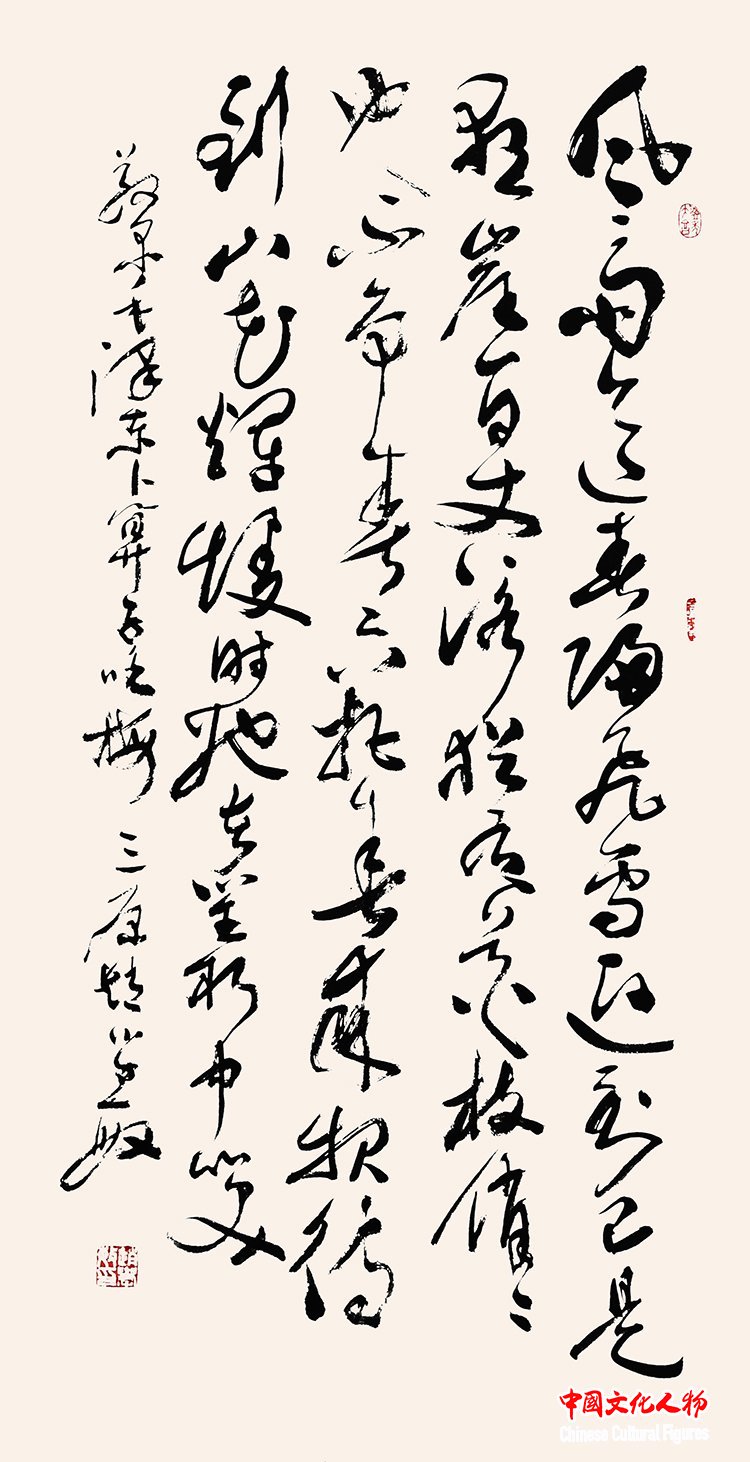 风雨送春归飞雪迎到已是
悬崖百丈冰犹有花枝俏ミ
也不争春只把春来报待
到山花烂熳时她在丛中笑
敬录毛泽东卜算子咏梅 三原
中國文化人物
Chinese Cultural Figures